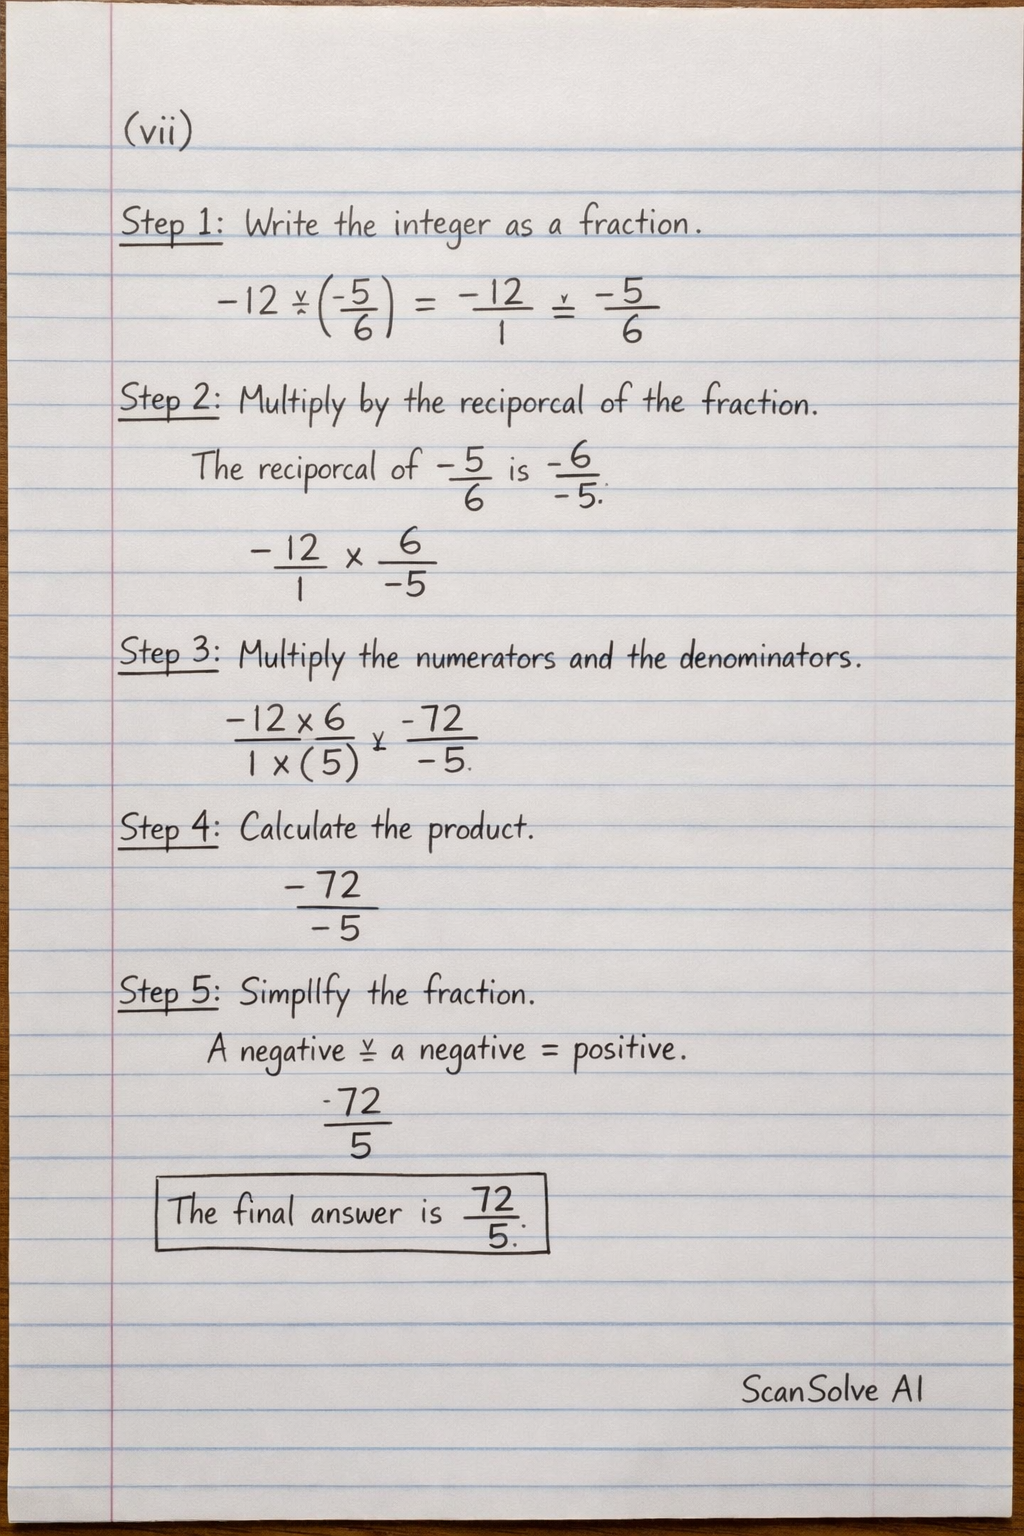 (vii)
Step 1: Write the integer as a fraction.
-12 ÷ (-5/6) = -12/1 ÷ -5/6
Step 2: Multiply by the reciporcal of the fraction.
The reciporcal of -5/6 is -6/-5.
-12/1 × 6/-5
Step 3: Multiply the numerators and the denominators.
-12 × 6 / 1 × (5) -72/-5.
Step 4: Calculate the product.
-72/-5
Step 5: Simpllfy the fraction.
A negative a negative = positive.
-72/5
The final answer is 72/5.
ScanSolve AI